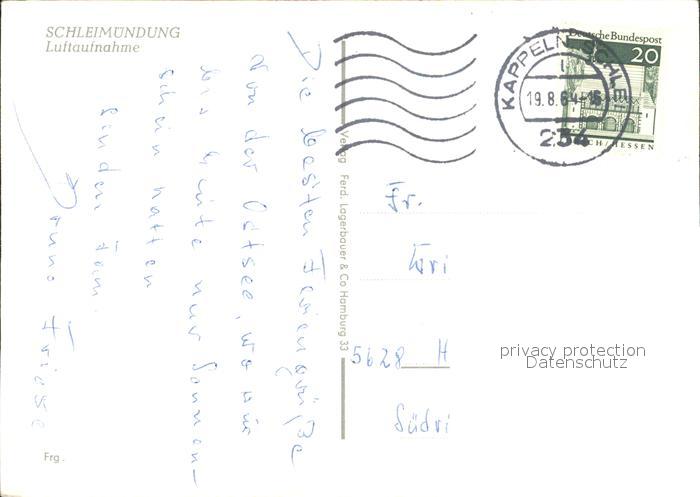 SCHLEIMÜNDUNG
Luftaufnahme
Die besten Feriengrüße
von der Ostsee, wo wir
bis heute nur Sonnen-
schein hatten
senden Fam.
Friese
Frg.
Verlag Ferd. Lagerbauer & Co Hamburg 33
KAPPELN SCHLEI
19.8.64-16
234
Deutsche Bundespost
20
LORSCH/HESSEN
Fr.
5628 H
Südri
privacy protection
Datenschutz